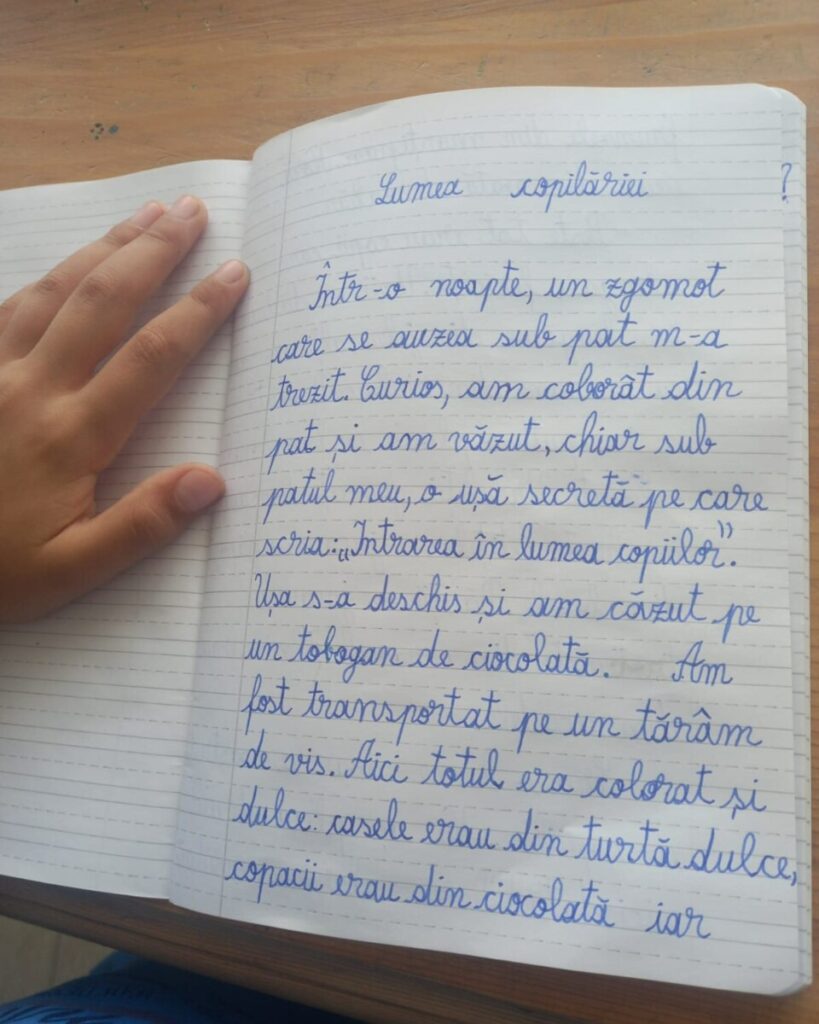 Lumea copilăriei ?
Într-o noapte, un zgomot
care se auzea sub pat m-a
trezit. Curios, am coborât din
pat și am văzut, chiar sub
patul meu, o ușă secretă pe care
scria: „Intrarea în lumea copiilor”.
Ușa s-a deschis și am căzut pe
un tobogan de ciocolată. Am
fost transportat pe un tărâm
de vis. Aici totul era colorat și
dulce: casele erau din turtă dulce,
copacii erau din ciocolată iar